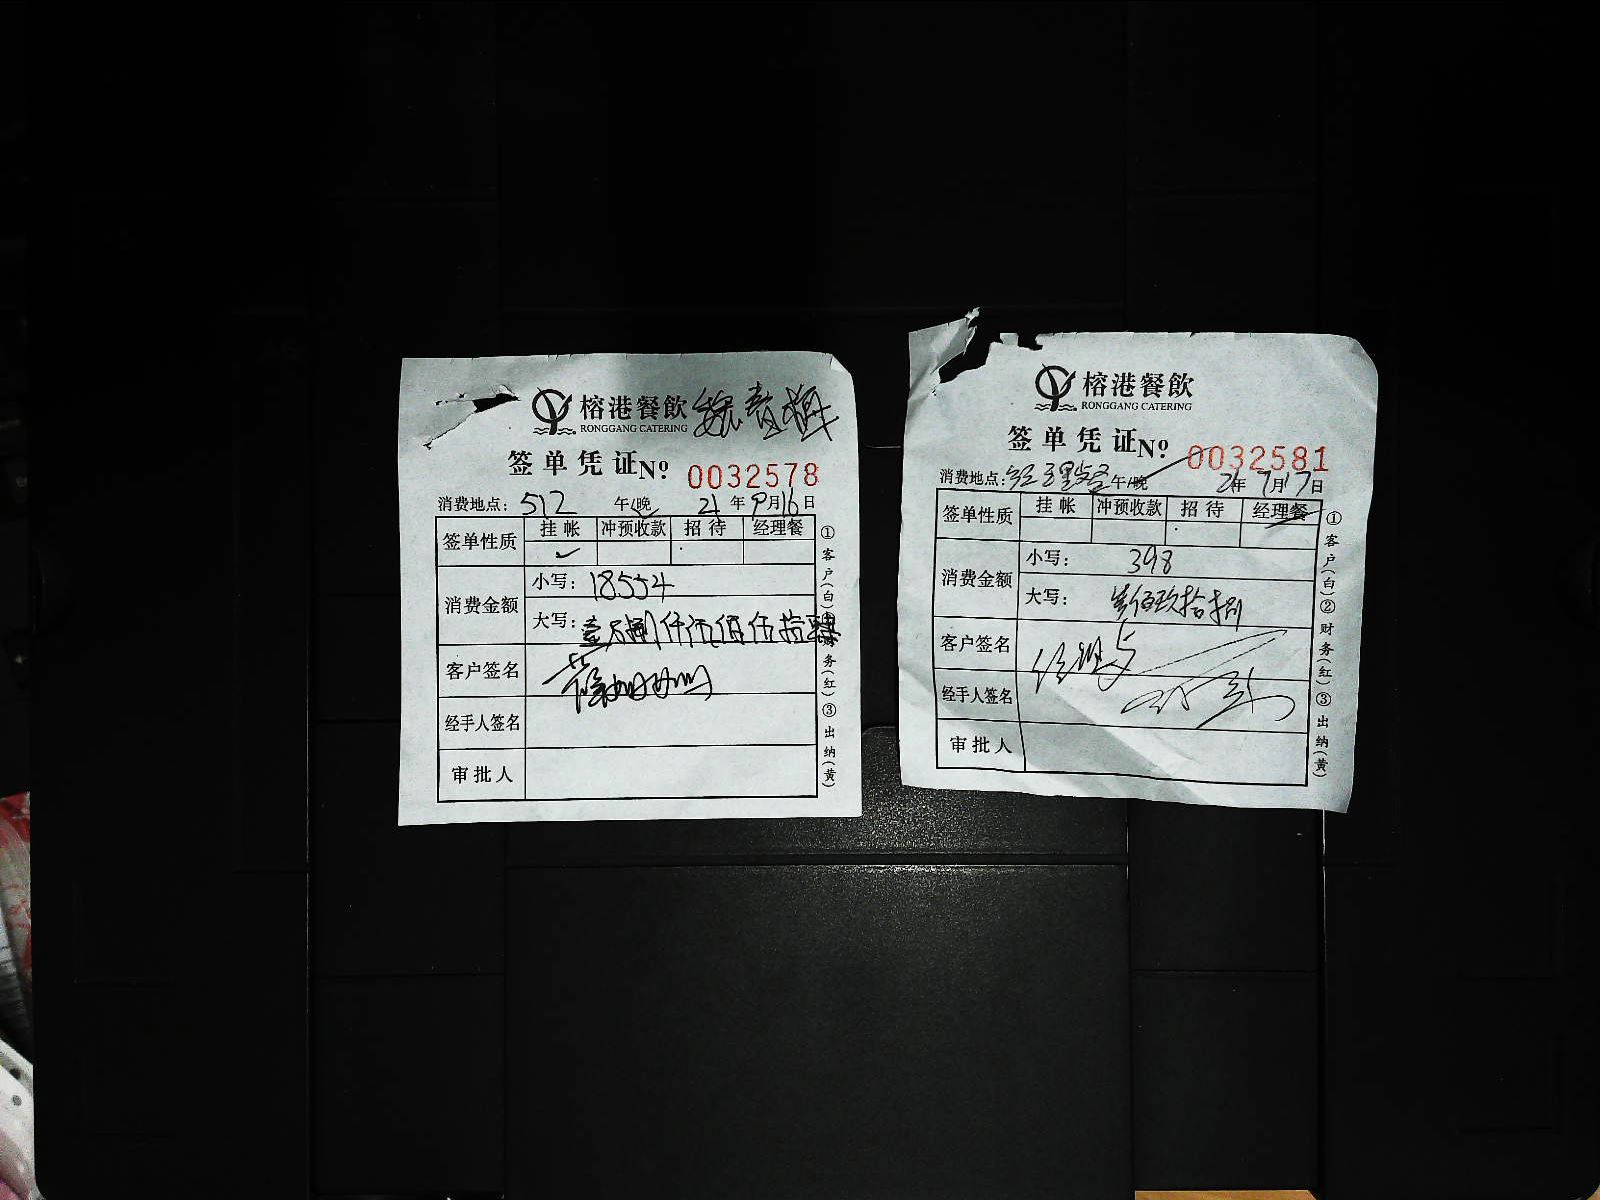 榕港餐飲
RONGGANG CATERING
签单凭证 Nº 0032578
消费地点: 512 午/晚 21年9月16日
签单性质 挂帐 冲预收款 招待 经理餐
✓
消费金额 小写: 18554
大写: 壹万捌仟伍佰伍拾肆
客户签名
经手人签名
审批人
①客户(白)②财务(红)③出纳(黄)
榕港餐飲
RONGGANG CATERING
签单凭证 Nº 0032581
消费地点: 午/晚 21年9月17日
签单性质 挂帐 冲预收款 招待 经理餐
消费金额 小写: 398
大写: 叁佰玖拾捌
客户签名
经手人签名
审批人
①客户(白)②财务(红)③出纳(黄)